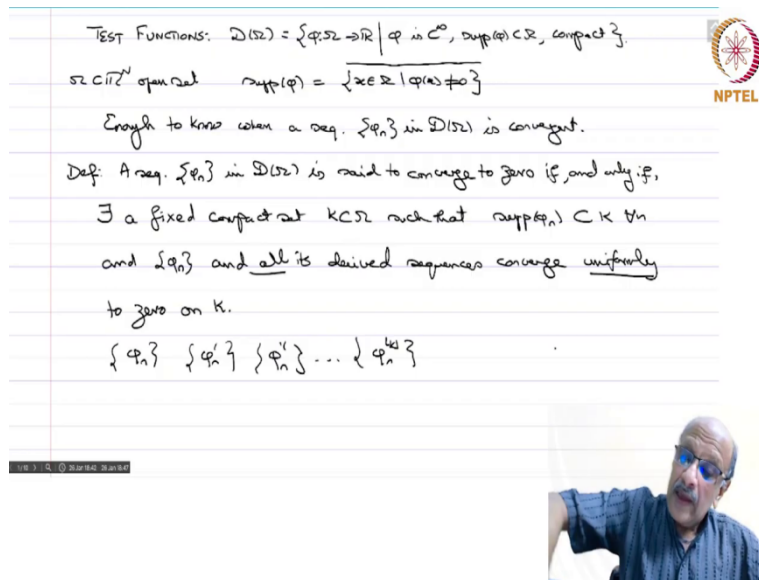 TEST FUNCTIONS: D(Ω) = {φ:Ω→ℝ | φ is C^∞, supp(φ)⊂Ω, compact}.
Ω⊂ℝ^N open set supp(φ) = {x∈Ω | φ(x)≠0}
Enough to know when a seq. {φn} in D(Ω) is convergent.
Def: A seq. {φn} in D(Ω) is said to converge to zero if, and only if,
∃ a fixed compact set K⊂Ω such that supp(φn) ⊂ K ∀n
and {φn} and all its derived sequences converge uniformly
to zero on K.
{φn} {φn'} {φn''} ... {φn^(k)}
NPTEL
1/10